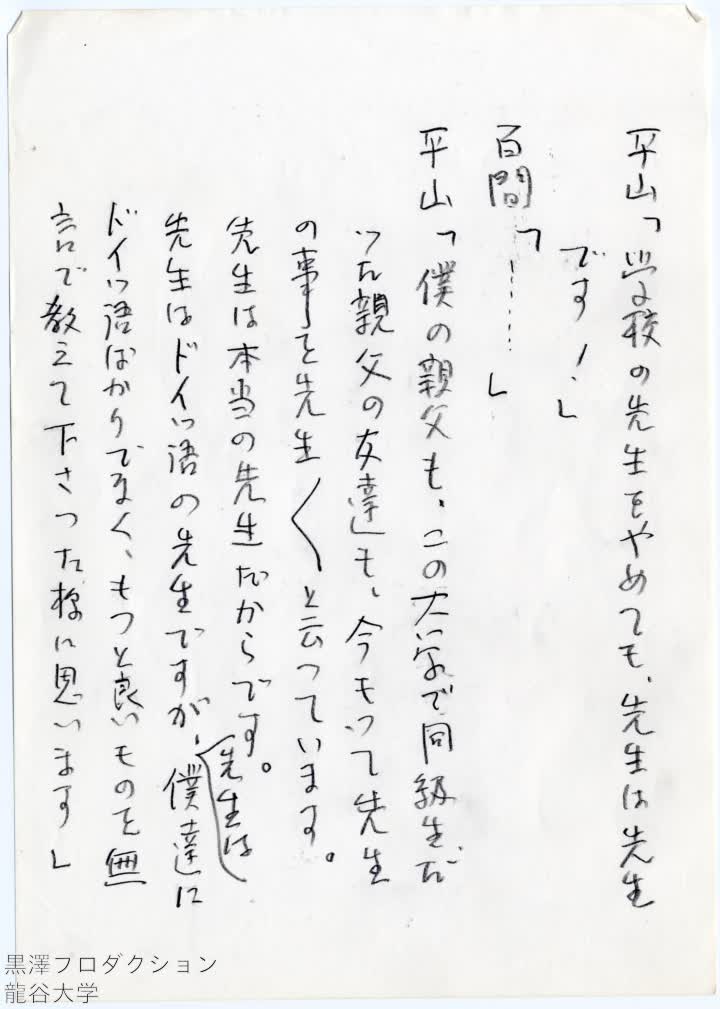 平山「学校の先生をやめても、先生は先生
です！」
百間「……」
平山「僕の親父も、この大学で同級生だ
つた親父の友達も、今もつて先生
の事を先生〱と云つています。
先生は本当の先生だからです。
先生はドイツ語の先生ですが、先生は僕達に
ドイツ語ばかりでなく、もつと良いものを無
言で教えて下さつた様に思います」
黒澤プロダクション
龍谷大学